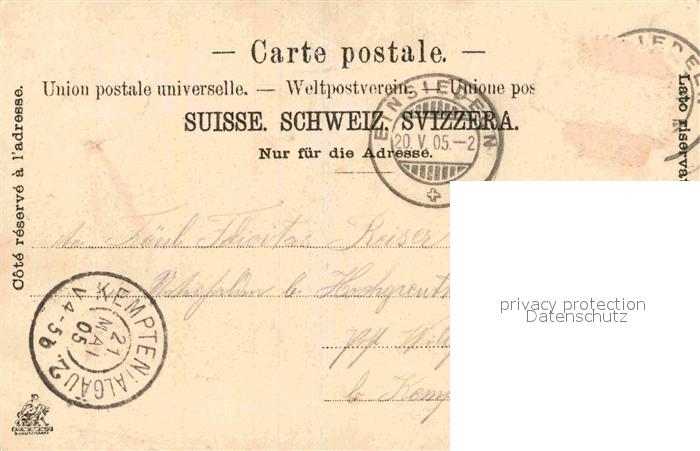 — Carte postale. —
Union postale universelle. — Weltpostverein. — Unione pos
SUISSE. SCHWEIZ. SVIZZERA.
Nur für die Adresse.
Côté réservé à l'adresse.
Lato riserva
EINSIEDELN
20.V.05.–2
SIEDE
Felicitas Reiser
b
Post
b. Kemp
KEMPTEN (ALGÄU) 2.
21
MAI
05
V 4-5 b
privacy protection
Datenschutz